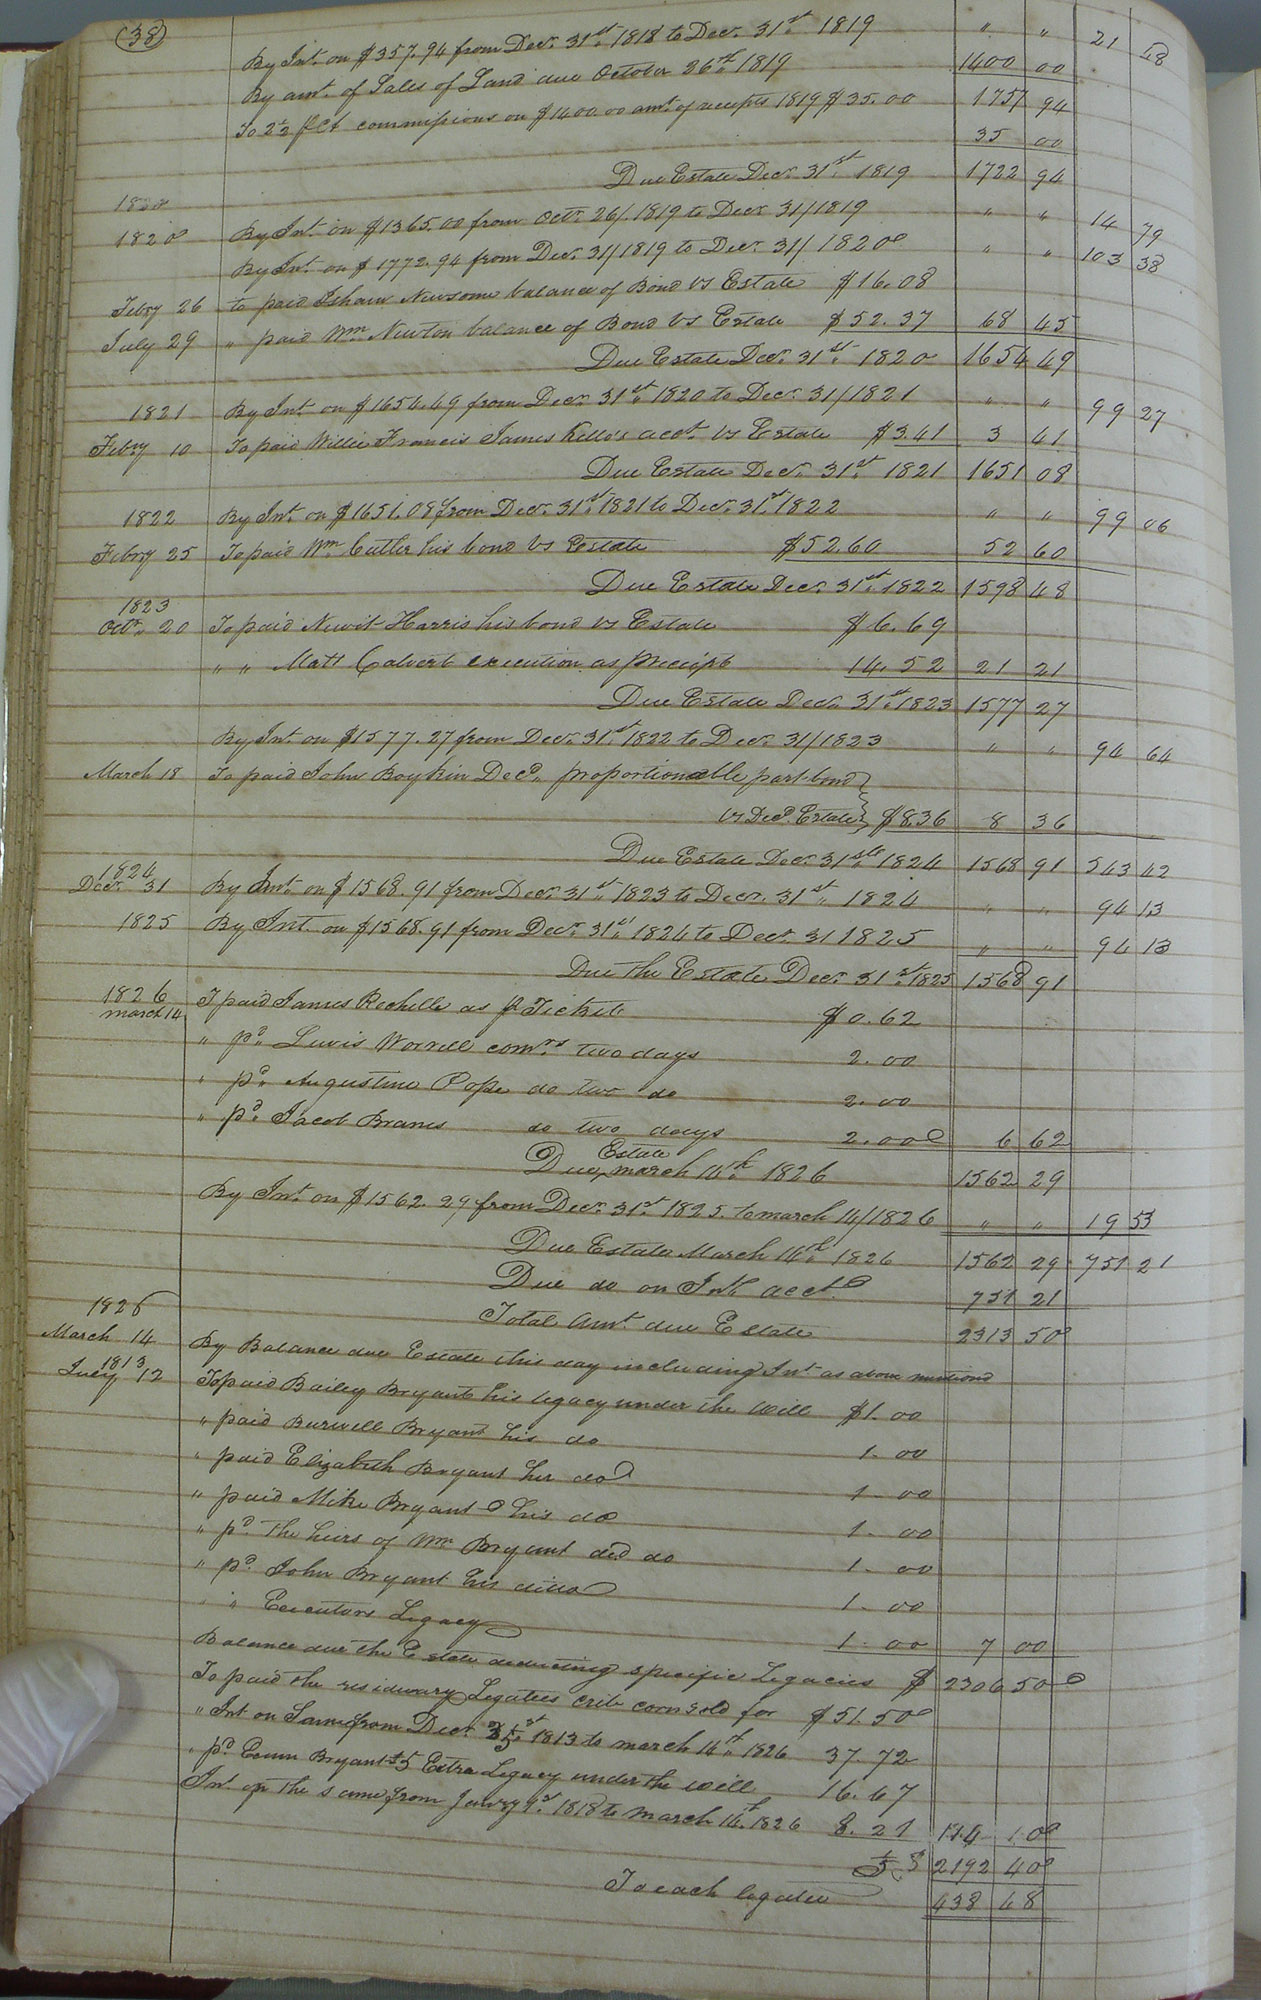 (38)
By Int. on $357.94 from Decr. 31st. 1818 to Decr. 31st. 1819 " " 21 48
By amt. of Sales of Land due October 26th. 1819 1400 00
1757 94
To 2½ pct commissions on $1400.00 amt. of receipts 1819 $35.00 35 00
Due Estate Decr. 31st 1819 1722 94
1820
1820 By Int. on $1365.00 from Octr. 26/1819 to Decr 31/1819 " " 14 79
By Int. on $1772.94 from Decr. 31/1819 to Decr. 31/1820 " " 103 38
Febry 26 to paid Isham Newsome balance of Bond vs Estate $16.08
July 29 " paid Wm. Newton balance of Bond vs Estate $52.37 68 45
Due Estate Decr. 31st. 1820 1654 49
1821 By Int. on $1654.49 from Decr. 31st. 1820 to Decr. 31/1821 " " 99 27
Febry 10 To paid Willie Francis James Kello's acct. vs Estate $3.41 3 41
Due Estate Decr. 31st. 1821 1651 08
1822 By Int. on $1651.08 from Decr. 31st. 1821 to Decr. 31st. 1822 " " 99 06
Febry 25 To paid Wm. Cutler his bond vs Estate $52.60 52 60
Due Estate Decr. 31st. 1822 1598 48
1823
Octr. 20 To paid Newit Harris his bond vs Estate $6.69
" " Matt Calvert execution as p receipt 14.52 21 21
Due Estate Decr. 31st. 1823 1577 27
By Int. on $1577.27 from Decr. 31st. 1822 to Decr. 31/1823 " " 94 64
March 18 To paid John Boykin Decd. proportionable part bond
vs Decd. Estate $8.36 8 36
Due Estate Decr. 31st 1824 1568 91 543 42
1824
Decr. 31 By Int. on $1568.91 from Decr. 31st. 1823 to Decr. 31st. 1824 " " 94 13
1825 By Int. on $1568.91 from Decr. 31st. 1824 to Decr. 31 1825 " " 94 13
Due the Estate Decr. 31st 1825 1568 91
1826
march 14 To paid James Rochelle as p Ticket $0.62
" pd. Lewis Worrell comrs two days 2.00
" pd. Augustine Pope do two do 2.00
" pd. Jacob Branes do two days 2.00 6 62
Due Estate march 14th. 1826 1562 29
By Int. on $1562.29 from Decr. 31st. 1825. to march 14/1826 " " 19 53
Due Estate March 14th. 1826 1562 29 751 21
Due do on Int. acct. 751 21
Total Amt. due Estate 2313 50
1826
March 14 By Balance due Estate this day including Int. as above mentiond
1813
July 12 To paid Bailey Bryant his legacy under the Will $1.00
" paid Burwell Bryant his do 1.00
" paid Elizabeth Bryant her do 1.00
" paid Mike Bryant his do 1.00
" pd. the heirs of Wm. Bryant decd do 1.00
" pd. John Bryant his ditto 1.00
" " Executors Legacy 1.00 7 00
Balance due the Estate deducting specific Legacies $ 2306 50
To paid the residuary Legatees crib corn sold for $51.50
" Int on Same from Decr. 25 1813 to march 14th. 1826 37.72
" pd. Bryant Extra Legacy under the will 16.67
Int. on the same from Janry 1st. 1818 to march 14th. 1826 8.21 114 10
⅕ $ 2192 40
To each legatee 438 48